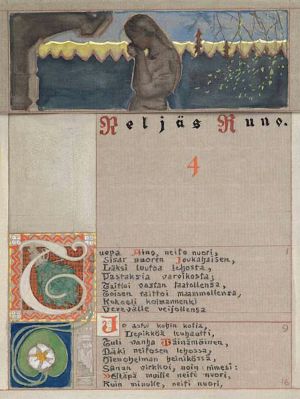 Neljäs Runo.
4
Tuopa Aino, neito nuori, 1
Sisar nuoren Joukahaisen,
Läksi luutoa lehosta,
Vastaksia varvikosta;
Taittoi vastan taatollensa,
Toisen taittoi maammollensa,
Kokoeli kolmannenki
Verevälle veijollensa
Jo astui kohin kotia, 9
Lepikköä leuhautti,
Tuli vanha Väinämöinen,
Näki neitosen lehossa,
Hienohelman heinikössä,
Sanan virkkoi, noin nimesi:
"Eläpä muille neiti nuori,
Kuin minulle, neiti nuori, 16